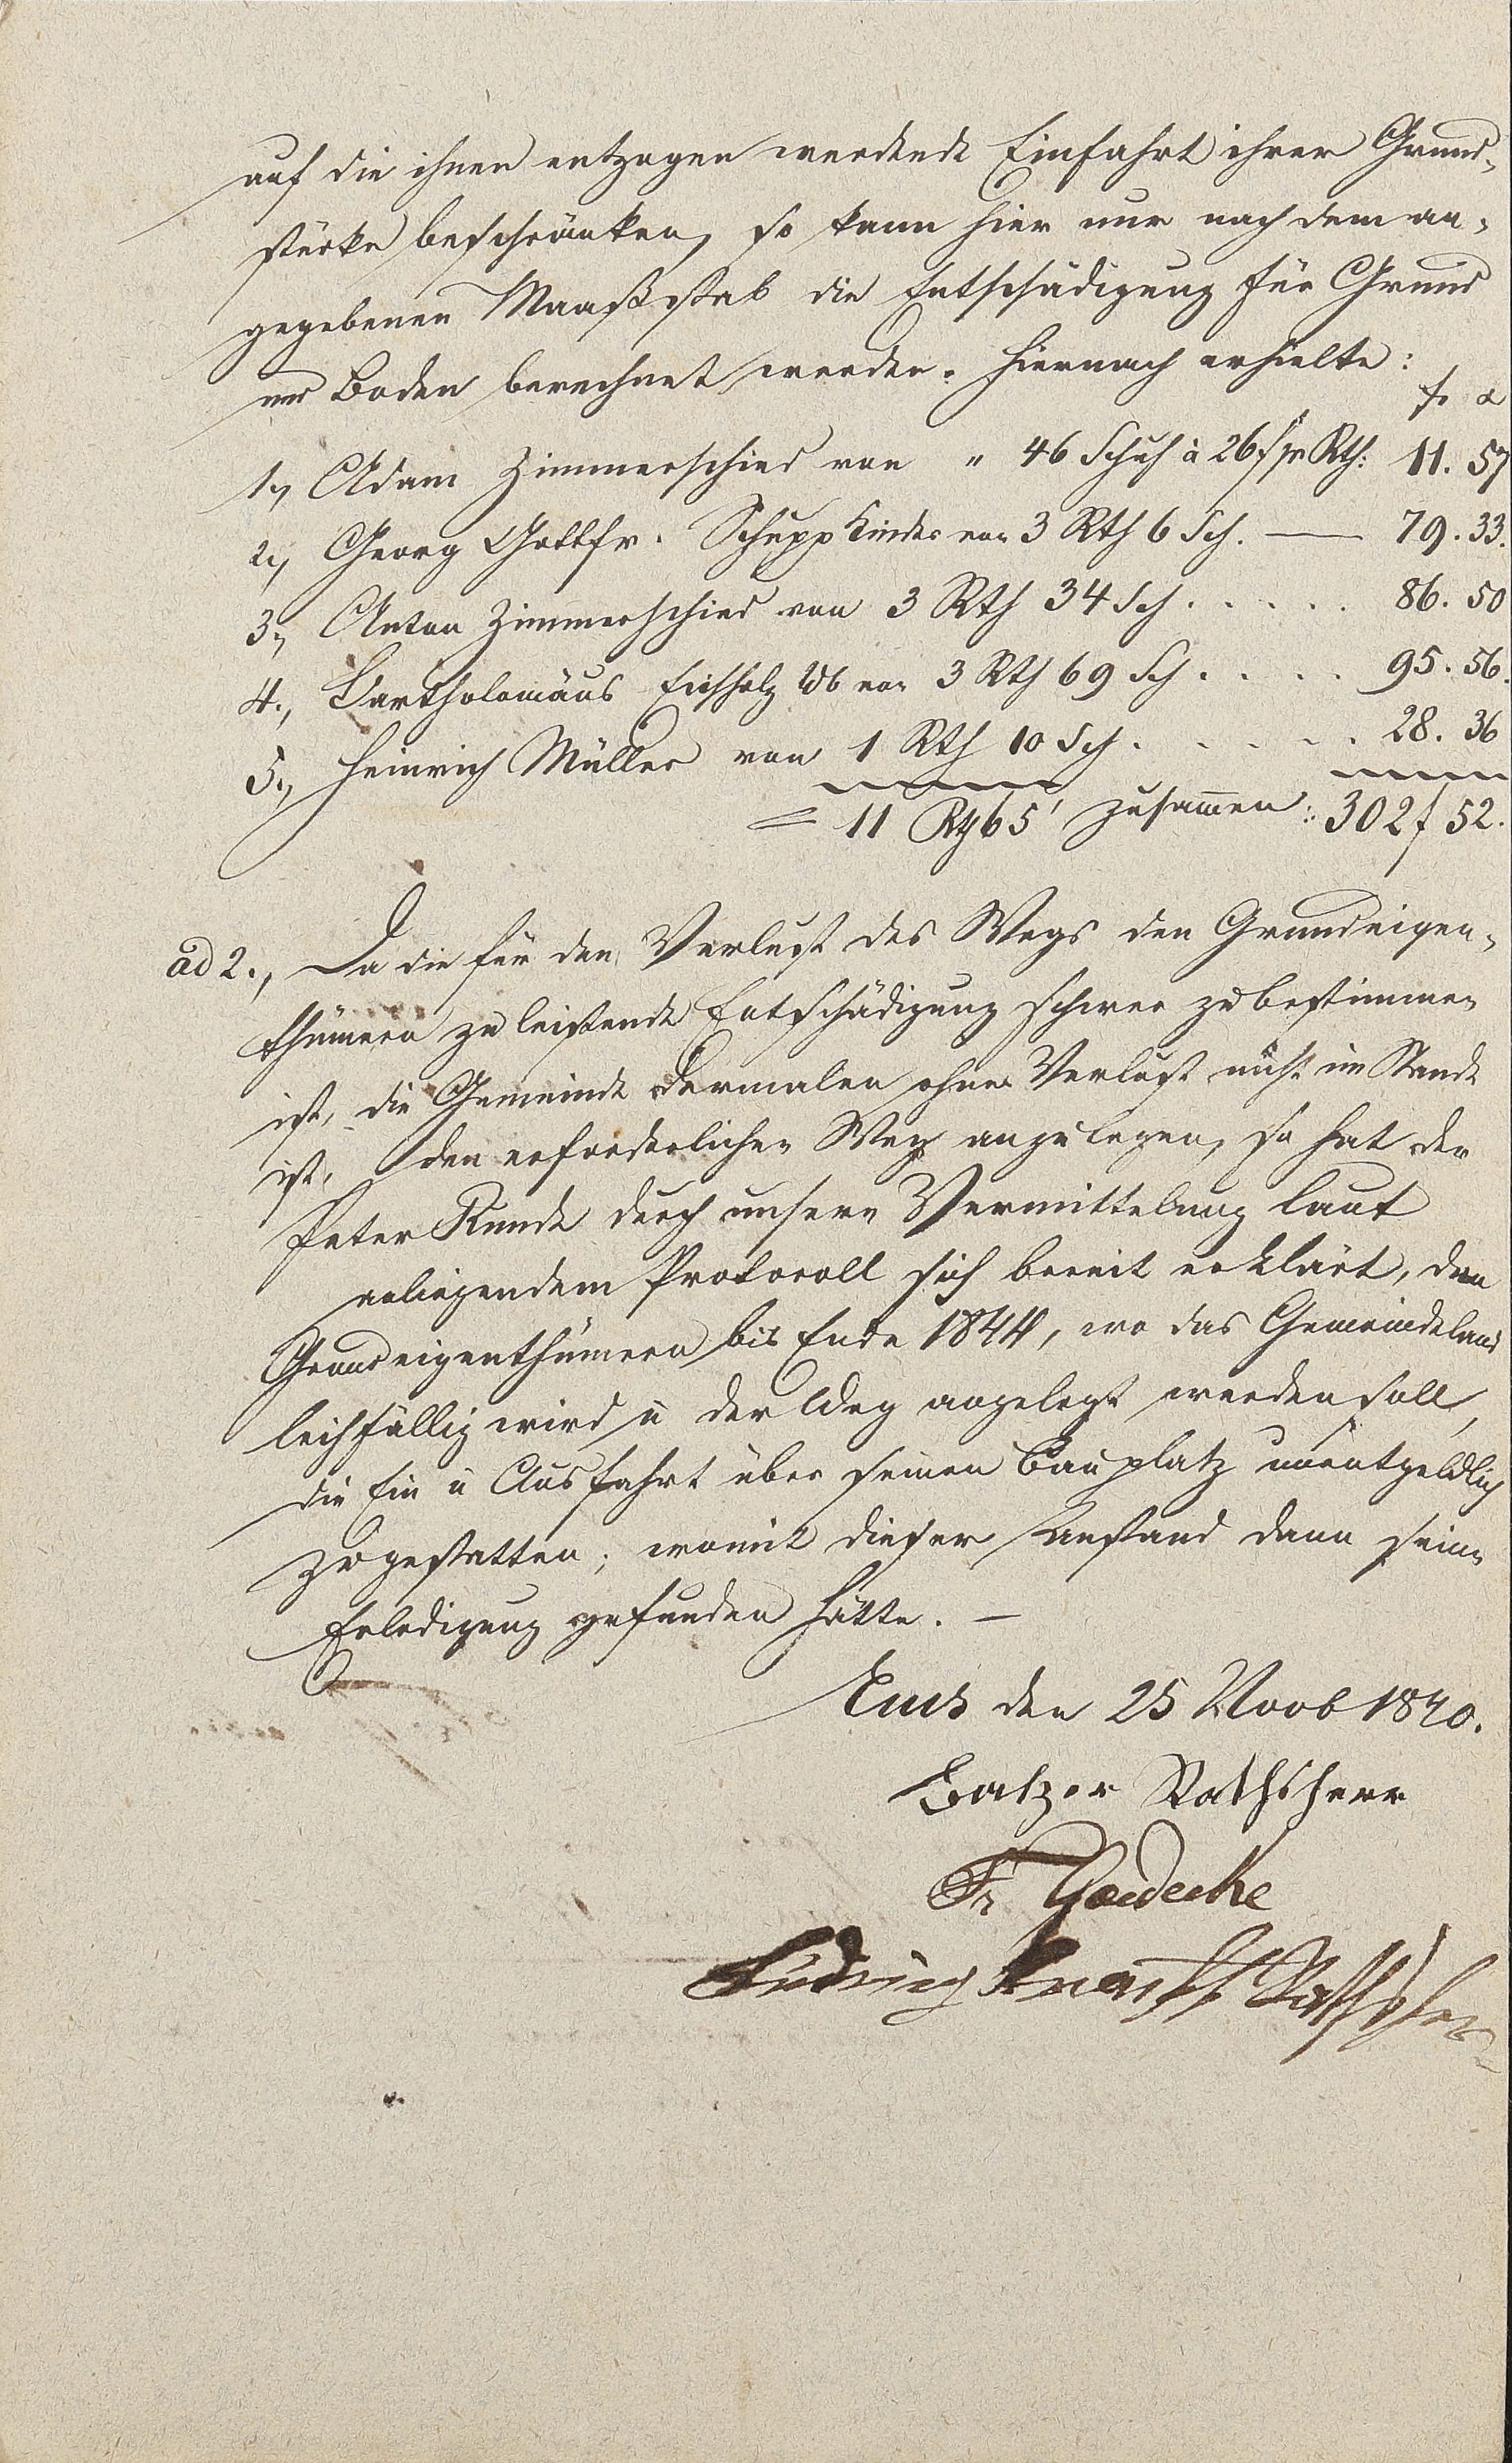 auf die ihnen entzogen werdende Einfahrt ihrer Grund-
stücke beschränken, so kann hier nur nach dem an-
gegebenen Maaßstab die Entschädigung für Grund
und Boden berechnet werden. Hiernach erhielte:
f. x
1., Adam Zimmerschied von " 46 Schuh à 26 f pr Rth: 11. 57
2., Georg Gottfr. Schupp Kinder von 3 Rth 6 Sch. — 79. 33.
3., Anton Zimmerschied von 3 Rth 34 Sch . . . . . 86. 50
4., Bartholomäus Eichholz Wb von 3 Rth 69 Sch . . . . 95. 56.
5., Heinrich Müller von 1 Rth 10 Sch . . . . . 28. 36
= 11 Rth 65' zusammen: 302 f 52.
ad 2., Da die für den Verlust des Wegs den Grundeigen-
thümern zu leistende Entschädigung schwer zu bestimmen
ist, die Gemeinde dermalen ohne Verlust nicht im Stande
ist, den erforderlichen Weg anzulegen, so hat der
Peter Runde durch unsere Vermittelung laut
anliegendem Protocoll sich bereit erklärt, den
Grundeigenthümern bis Ende 1844, wo das Gemeindeland
leihfällig wird u der Weg angelegt werden soll,
die Ein u Ausfahrt über seinen Bauplatz unentgeldlich
zu gestatten; womit dieser Anstand dann seine
Erledigung gefunden hätte. —
Ems den 25 Novb 1840.
Balzer Rathsherr
Fr Goedecke
Ludwig Rathsherr